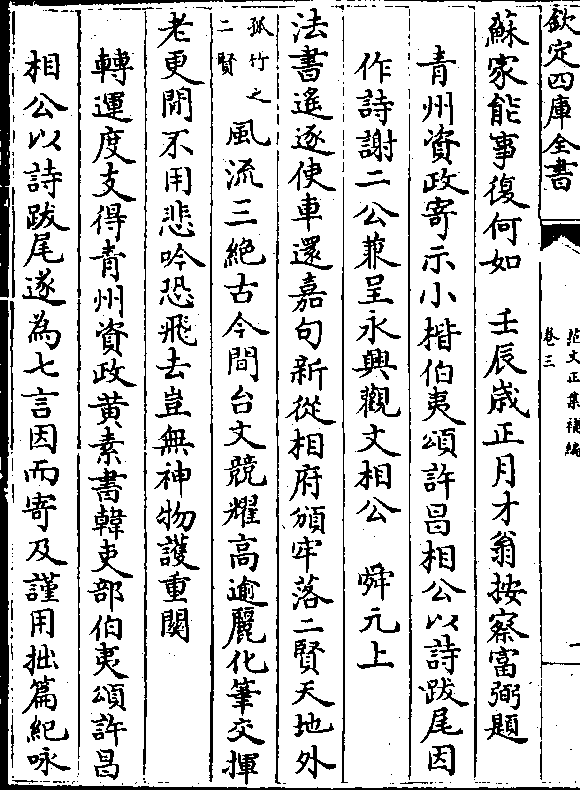 欽定四庫全書
范文正集補編
卷三
一
蘇家能事復何如　壬辰歳正月才翁按察富弼題
青州資政寄示小楷伯夷頌許昌相公以詩跋尾因
作詩謝二公兼呈永興觀文相公　舜元上
法書遙逐使車還嘉句新從相府頒牢落二賢天地外
孤竹之
二賢
風流三絶古今間台文競耀高逾麗化筆交揮
老更閒不用悲吟恐飛去豈無神物護重關
轉運度支得青州資政黄素書韓吏部伯夷頌許昌
相公以詩跋尾遂為七言因而寄及謹用拙篇紀咏